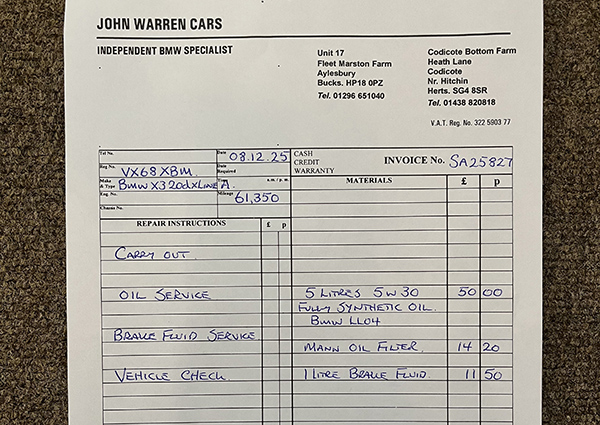 JOHN WARREN CARS
INDEPENDENT BMW SPECIALIST
Unit 17
Fleet Marston Farm
Aylesbury
Bucks. HP18 0PZ
Tel. 01296 651040
Codicote Bottom Farm
Heath Lane
Codicote
Nr. Hitchin
Herts. SG4 8SR
Tel. 01438 820818
V.A.T. Reg. No. 322 5903 77
Tel No.
Date 08.12.25
CASH
CREDIT
WARRANTY
INVOICE No. SA25827
Reg No. VX68 XBM
Date Required
Make & Type BMW X3 20d xLINE A.
Time a.m. / p.m.
Eng. No.
Mileage 61,350
Chassis No.
MATERIALS £ p
REPAIR INSTRUCTIONS £ p
CARRY OUT
OIL SERVICE
5 LITRES 5W30 50 00
FULLY SYNTHETIC OIL
BMW LL04
BRAKE FLUID SERVICE
MANN OIL FILTER. 14 20
VEHICLE CHECK
1 LITRE BRAKE FLUID. 11 50